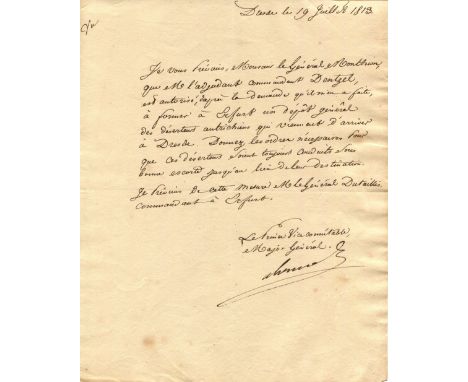 Dresde le 19 Juillet 1813.
Je vous préviens, Monsieur le Général Monthion,
que M. l'adjudant commandant Dentzel
est autorisé, d'après la demande qu'il m'en a faite,
à former à Erfurt un dépôt général
des déserteurs autrichiens qui viennent d'arriver
à Dresde. Donnez les ordres nécessaires pour
que ces déserteurs soient toujours conduits sous
bonne escorte jusqu'au lieu de leur destination.
Je préviens de cette mesure M. le Général Dutaillis
commandant à Erfurt.
Le Prince Vice connétable
Major Général.